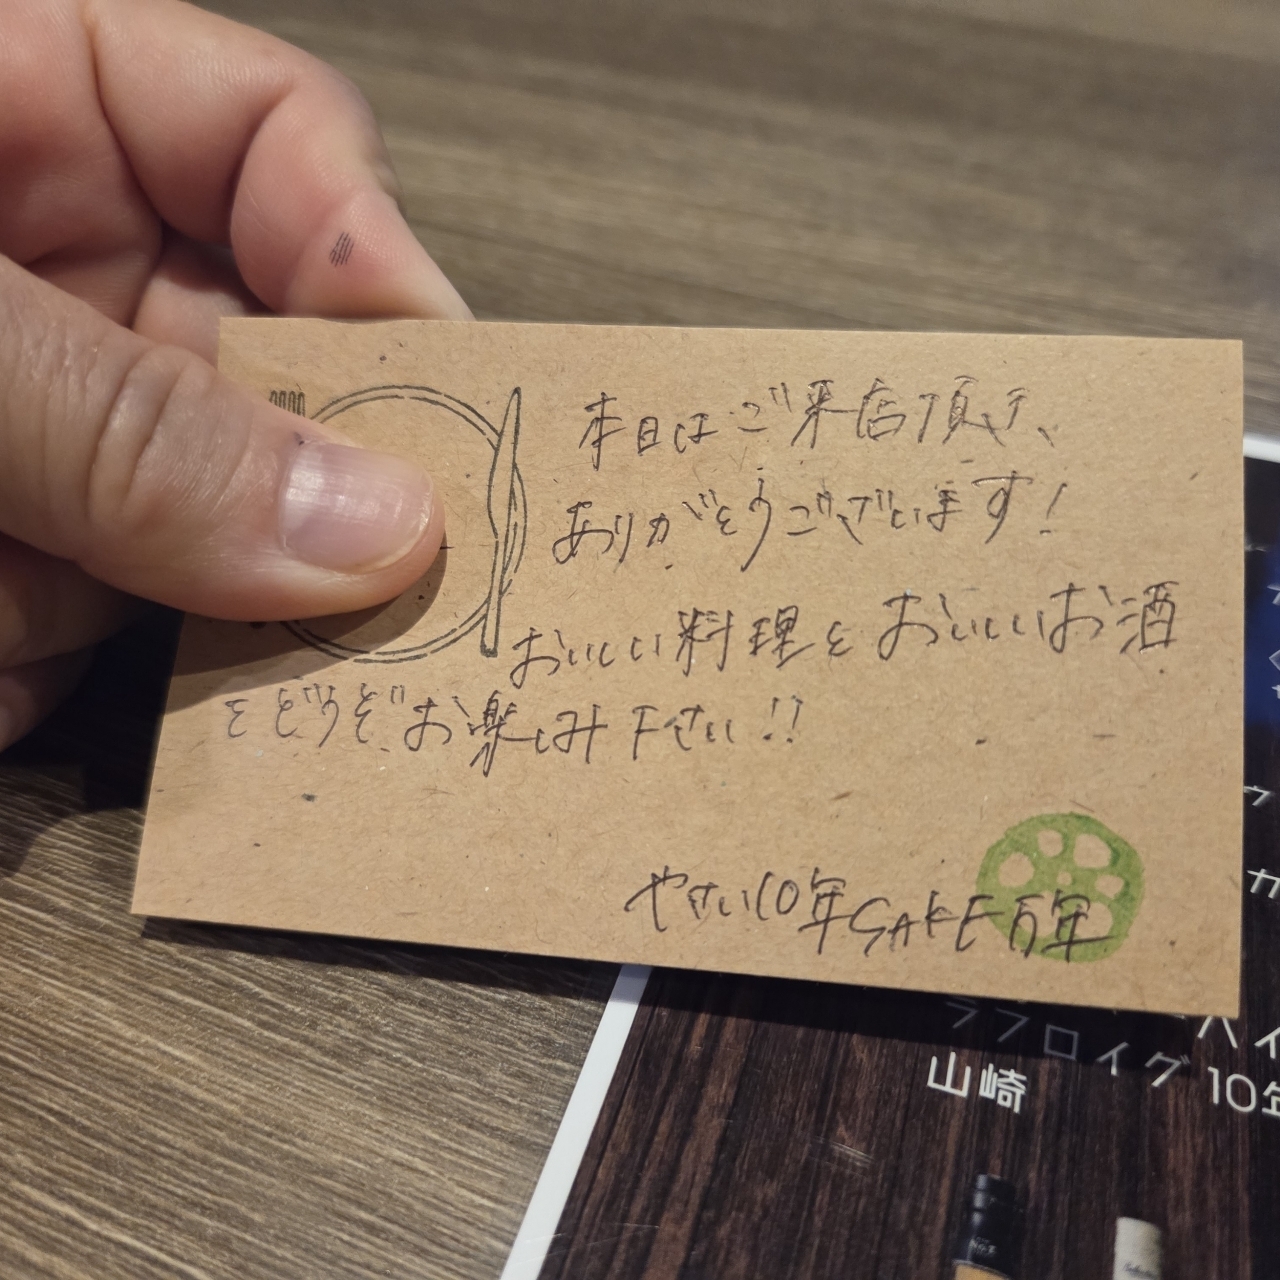 本日はご来店頂き、
ありがとうございます!
おいしい料理とおいしいお酒
をどうぞお楽しみ下さい!!
やさい10年SAKE万年
ラフロイグ10年
山崎
ハイ